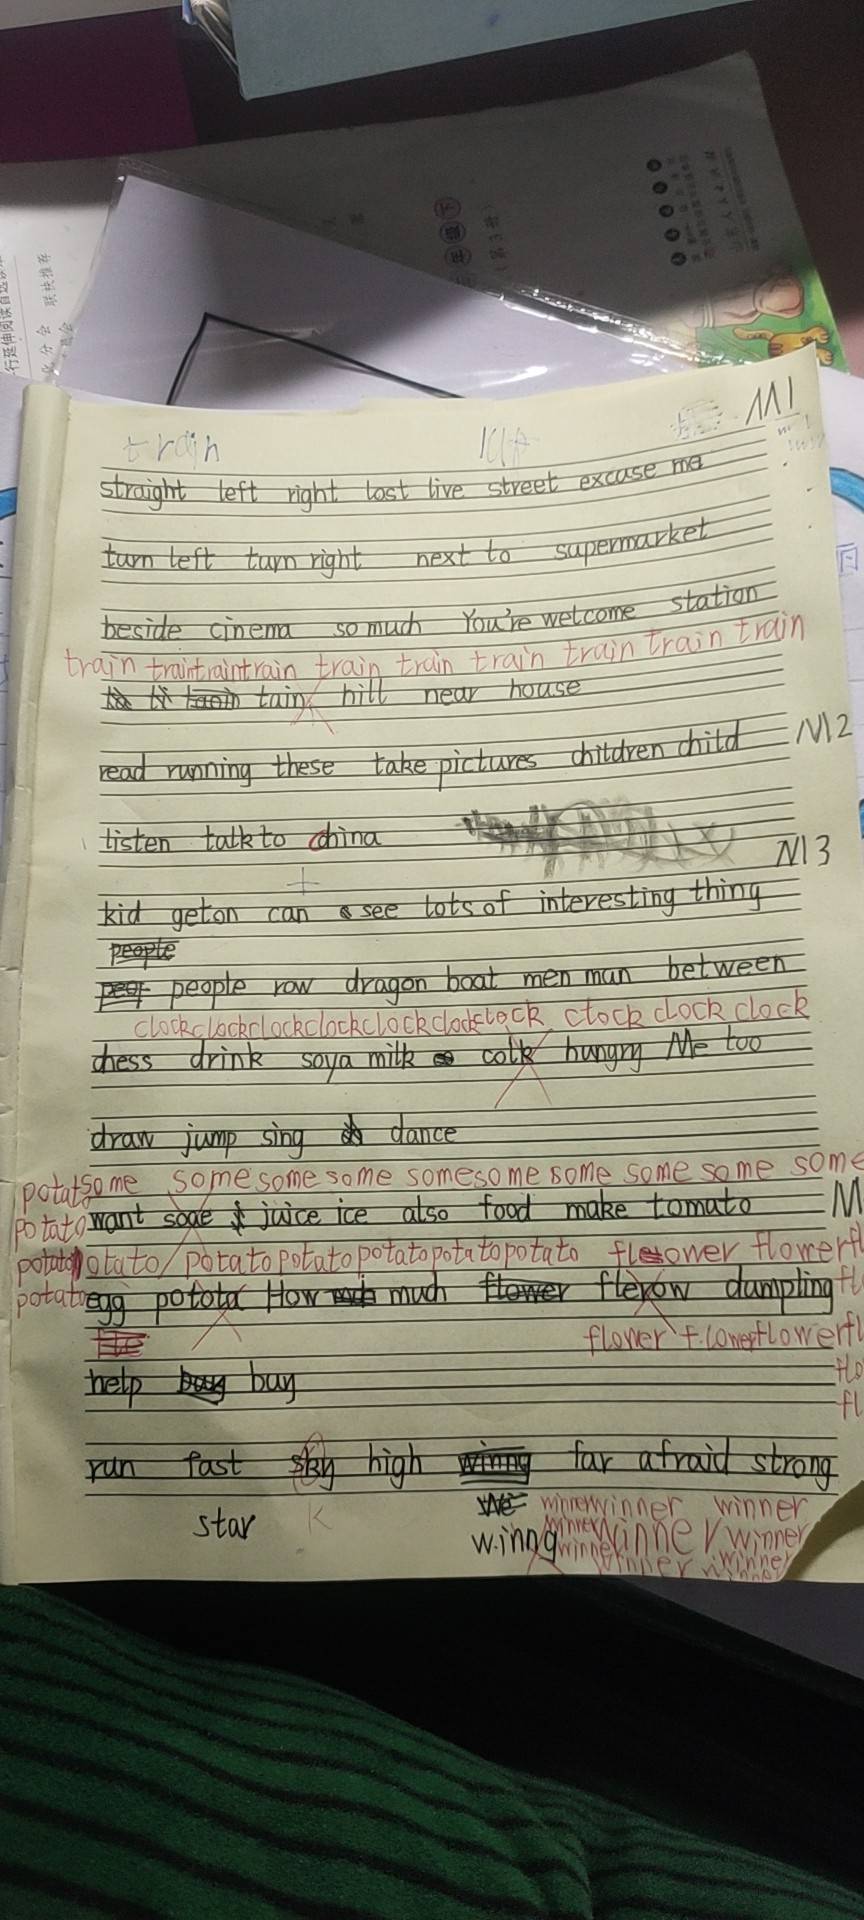 年级下
(第3册)
联袂推荐
train
M1
straight left right lost live street excase me
turn left turn right next to supermarket
beside cinema so much You're welcome station
train train train train train train train train train train
tain hill near house
read running these take pictures children child M2
listen talk to china
M3
kid get on can see lots of interesting thing
people
people row dragon boat men man between
clock clock clock clock clock clock clock clock clock clock
chess drink soya milk colk hungry Me too
draw jump sing dance
some some some some some some some some some some
potat
potato want sose juice ice also food make tomato M
potato potato potato potato potato potato potato flower flower fl
potato egg potota How much flower flerow dumpling fl
flower flower flower fl
help buy buy
flo
fl
run fast sky high winng far afraid strong
star K winner winner winner
winng winner winner winner
winner winner winner